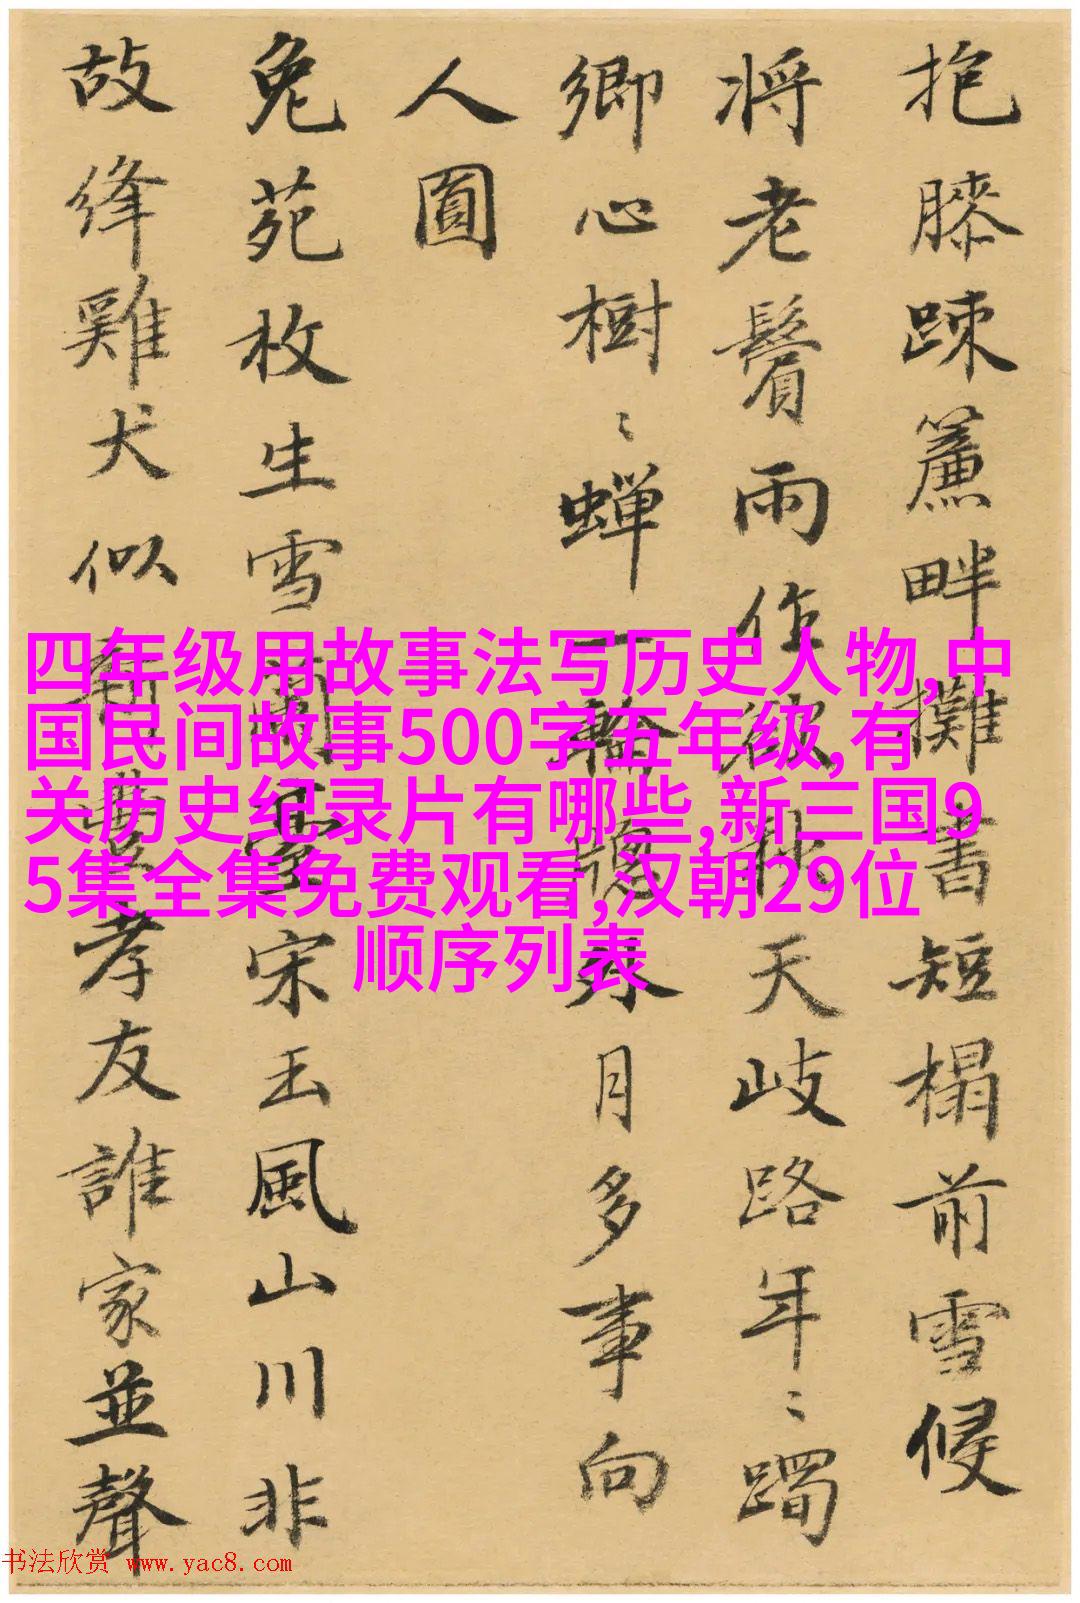 抱膝踈簾畔攤書短榻前雪侵
将老鬢雨作欲秋天岐路年〻躅
鄉心樹〻蝉一輪牕外月多事向
人圓
兔苑枚生雪蘭臺宋玉風山川非
故絳雞犬似新豐孝友誰家並聲
四年级用故事法写历史人物,中
国民间故事500字五年级,有
关历史纪录片有哪些,新三国9
5集全集免费观看,汉朝29位
顺序列表
书法欣赏 www.yac8.com